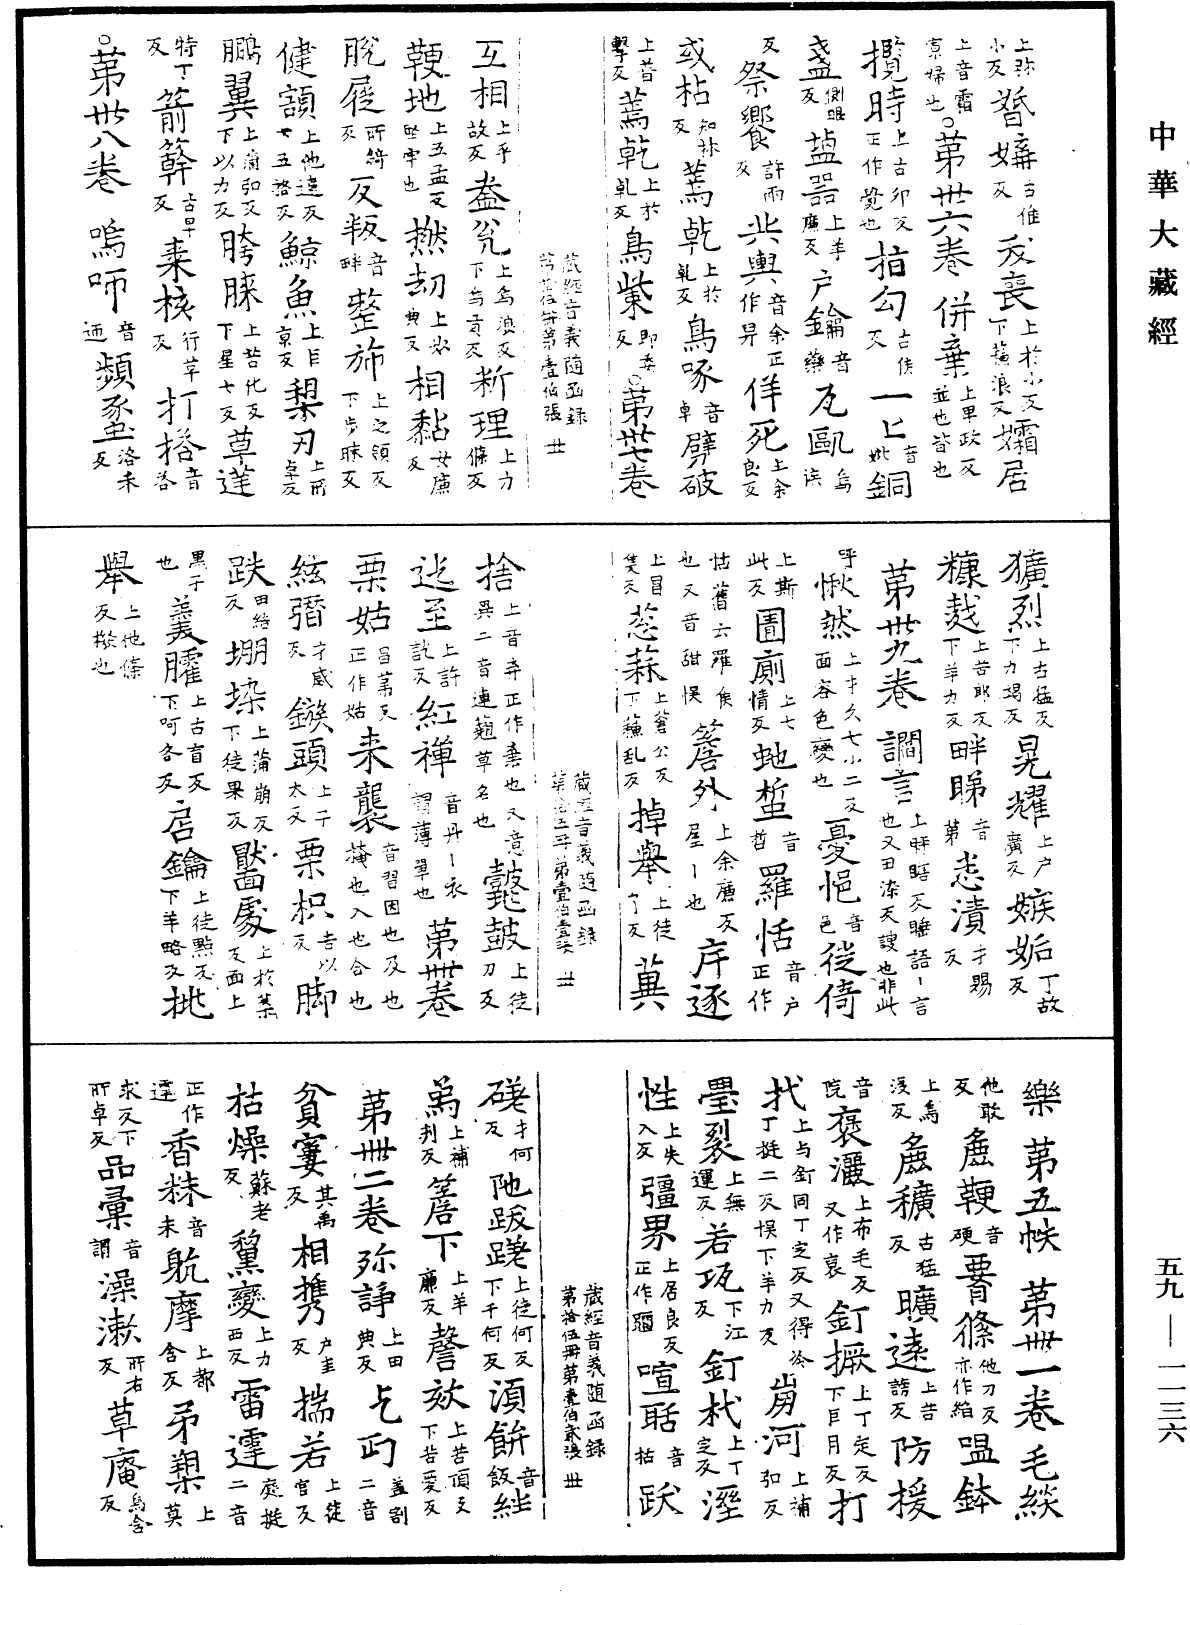 中華大藏經
上弥小反 㛰媾 古候反 夭喪 上於小反下蘓浪反 孀居
上音霜寡婦也 ○第卅六卷 併棄 上畢政反並也皆也
攪時 上古卯反正作覺也 指勾 古侯反 一匕 音妣 銅
盞 側眼反 盪器 上羊廉反 户鑰 音藥 瓦甌 烏侯
反 祭饗 許兩反 此輿 音余正作舁 佯死 上余良反
或枯 知林反 蔫乾 上於乹反 鳥啄 音卓 劈破
上普擊反 蔫乾 上於乹反 鳥柴 即委反 ○第卅七卷
藏經音義隨函録
第拾伍册第壹伯張 卅
互相 上乎故反 盎瓮 上烏浪反下烏貢反 斯理 上力條反
鞕地 上五孟反堅牢也 撚劫 上奴典反 相黏 女廉反
脫屣 所綺反 反叛 音畔 整斾 上之領反下步昧反
健額 上他達反下五洛反 鯨魚 上巨京反 槊刃 上所卓反
鵬翼 上蒲弘反下以力反 胯膝 上苦化反下星七反 草莛
特丁反 箭簳 古旱反 棗核 行革反 打㧺 音答
○第卅八卷 嗚咂 音迊 蘋蔂 洛木反
獷烈 上古猛反下力竭反 晃耀 上户廣反 嫉妬 丁故反
糠麧 上苦郎反下羊力反 畔睇 音第 恚漬 才賜反
第卅九卷 讇言 也又田染反諛也非此
呼 愀然 上才久七小二反面容色變也 憂悒 音邑 從倚
上斯此反 圊廁 上七情反 虵蜇 音哲 羅恬 音户正作
怙舊云羅侯也又音甜悮 簷外 上余廉反屋丨也 斥逐
上昌隻反 葱蒜 上蒼公反下蘓乱反 掉舉 上徒了反 䔬
藏經音義隨函録
第拾五册第壹伯壹張 卅
捨 上音弃正作棄也又意異二音連翹草名也 鼗鼓 上徒刀反
迄至 上許訖反 紅襌 音丹丨衣謂薄單也 第卅卷
栗姑 昌葉反正作姑 来襲 音習因也及也掩也入也合也
絃彇 才咸反 鏃頭 上子木反 栗枳 吉以反 脚
跌 田結反 堋垜 上蒲崩反下徒果反 黶處 上於葉反面上
黑子也 羹臛 上古盲反下呵各反 扂鑰 上徒點反下羊略反 挑
舉 上他條反撥也
樂 第五帙 第卅一卷 毛緂
他敢反 麁鞕 音硬 䙅絛 他刀反亦作縚 嗢鉢
上烏没反 麁穬 古猛反 曠遠 上苦謗反 防援
音院 褒灑 上布毛反又作裒 釘橛 上丁定反下巨月反 打
杙 上与釘同丁定反又得冷丁挺二反悮下羊力反 崩河 上補弘反
璺裂 上無運反 若㼚 下江反 釘杙 上丁定反 溼
性 上失入反 彊界 上居良反正作疆 喧聒 音栝 跃
藏經音義隨函録
第拾伍册第壹伯貳張 卅
磋 才何反 陁跋蹉 上徒何反下千何反 湏餅 音飯 絓
為 上補刋反 簷下 上羊廉反 謦欬 上苦頂反下苦愛反
第卅二卷 殄諍 上田典反 乞丐 盖割二音
貧寠 其禹反 相攜 户圭反 揣若 上徒官反
枯燥 蘇老反 黧變 上力西反 雷霆 庭挺二音
正作霆 香秣 音末 躭摩 上都含反 矛槊 上莫
求反下所卓反 品彙 音謂 澡漱 所右反 草庵 烏含反
五九 一一三六